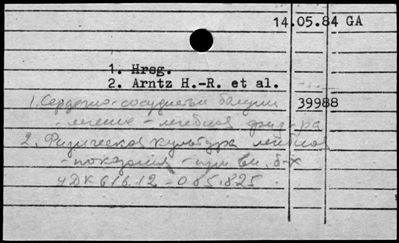 14.05.84 GA
1. Hrsg.
2. Arntz H.-R. et al.
1. Сердечно-сосудистые 39988
лечение - лечебная физ-ра
2. Физическая культура лечебная
- показания - при
УДК 616.12-085.825